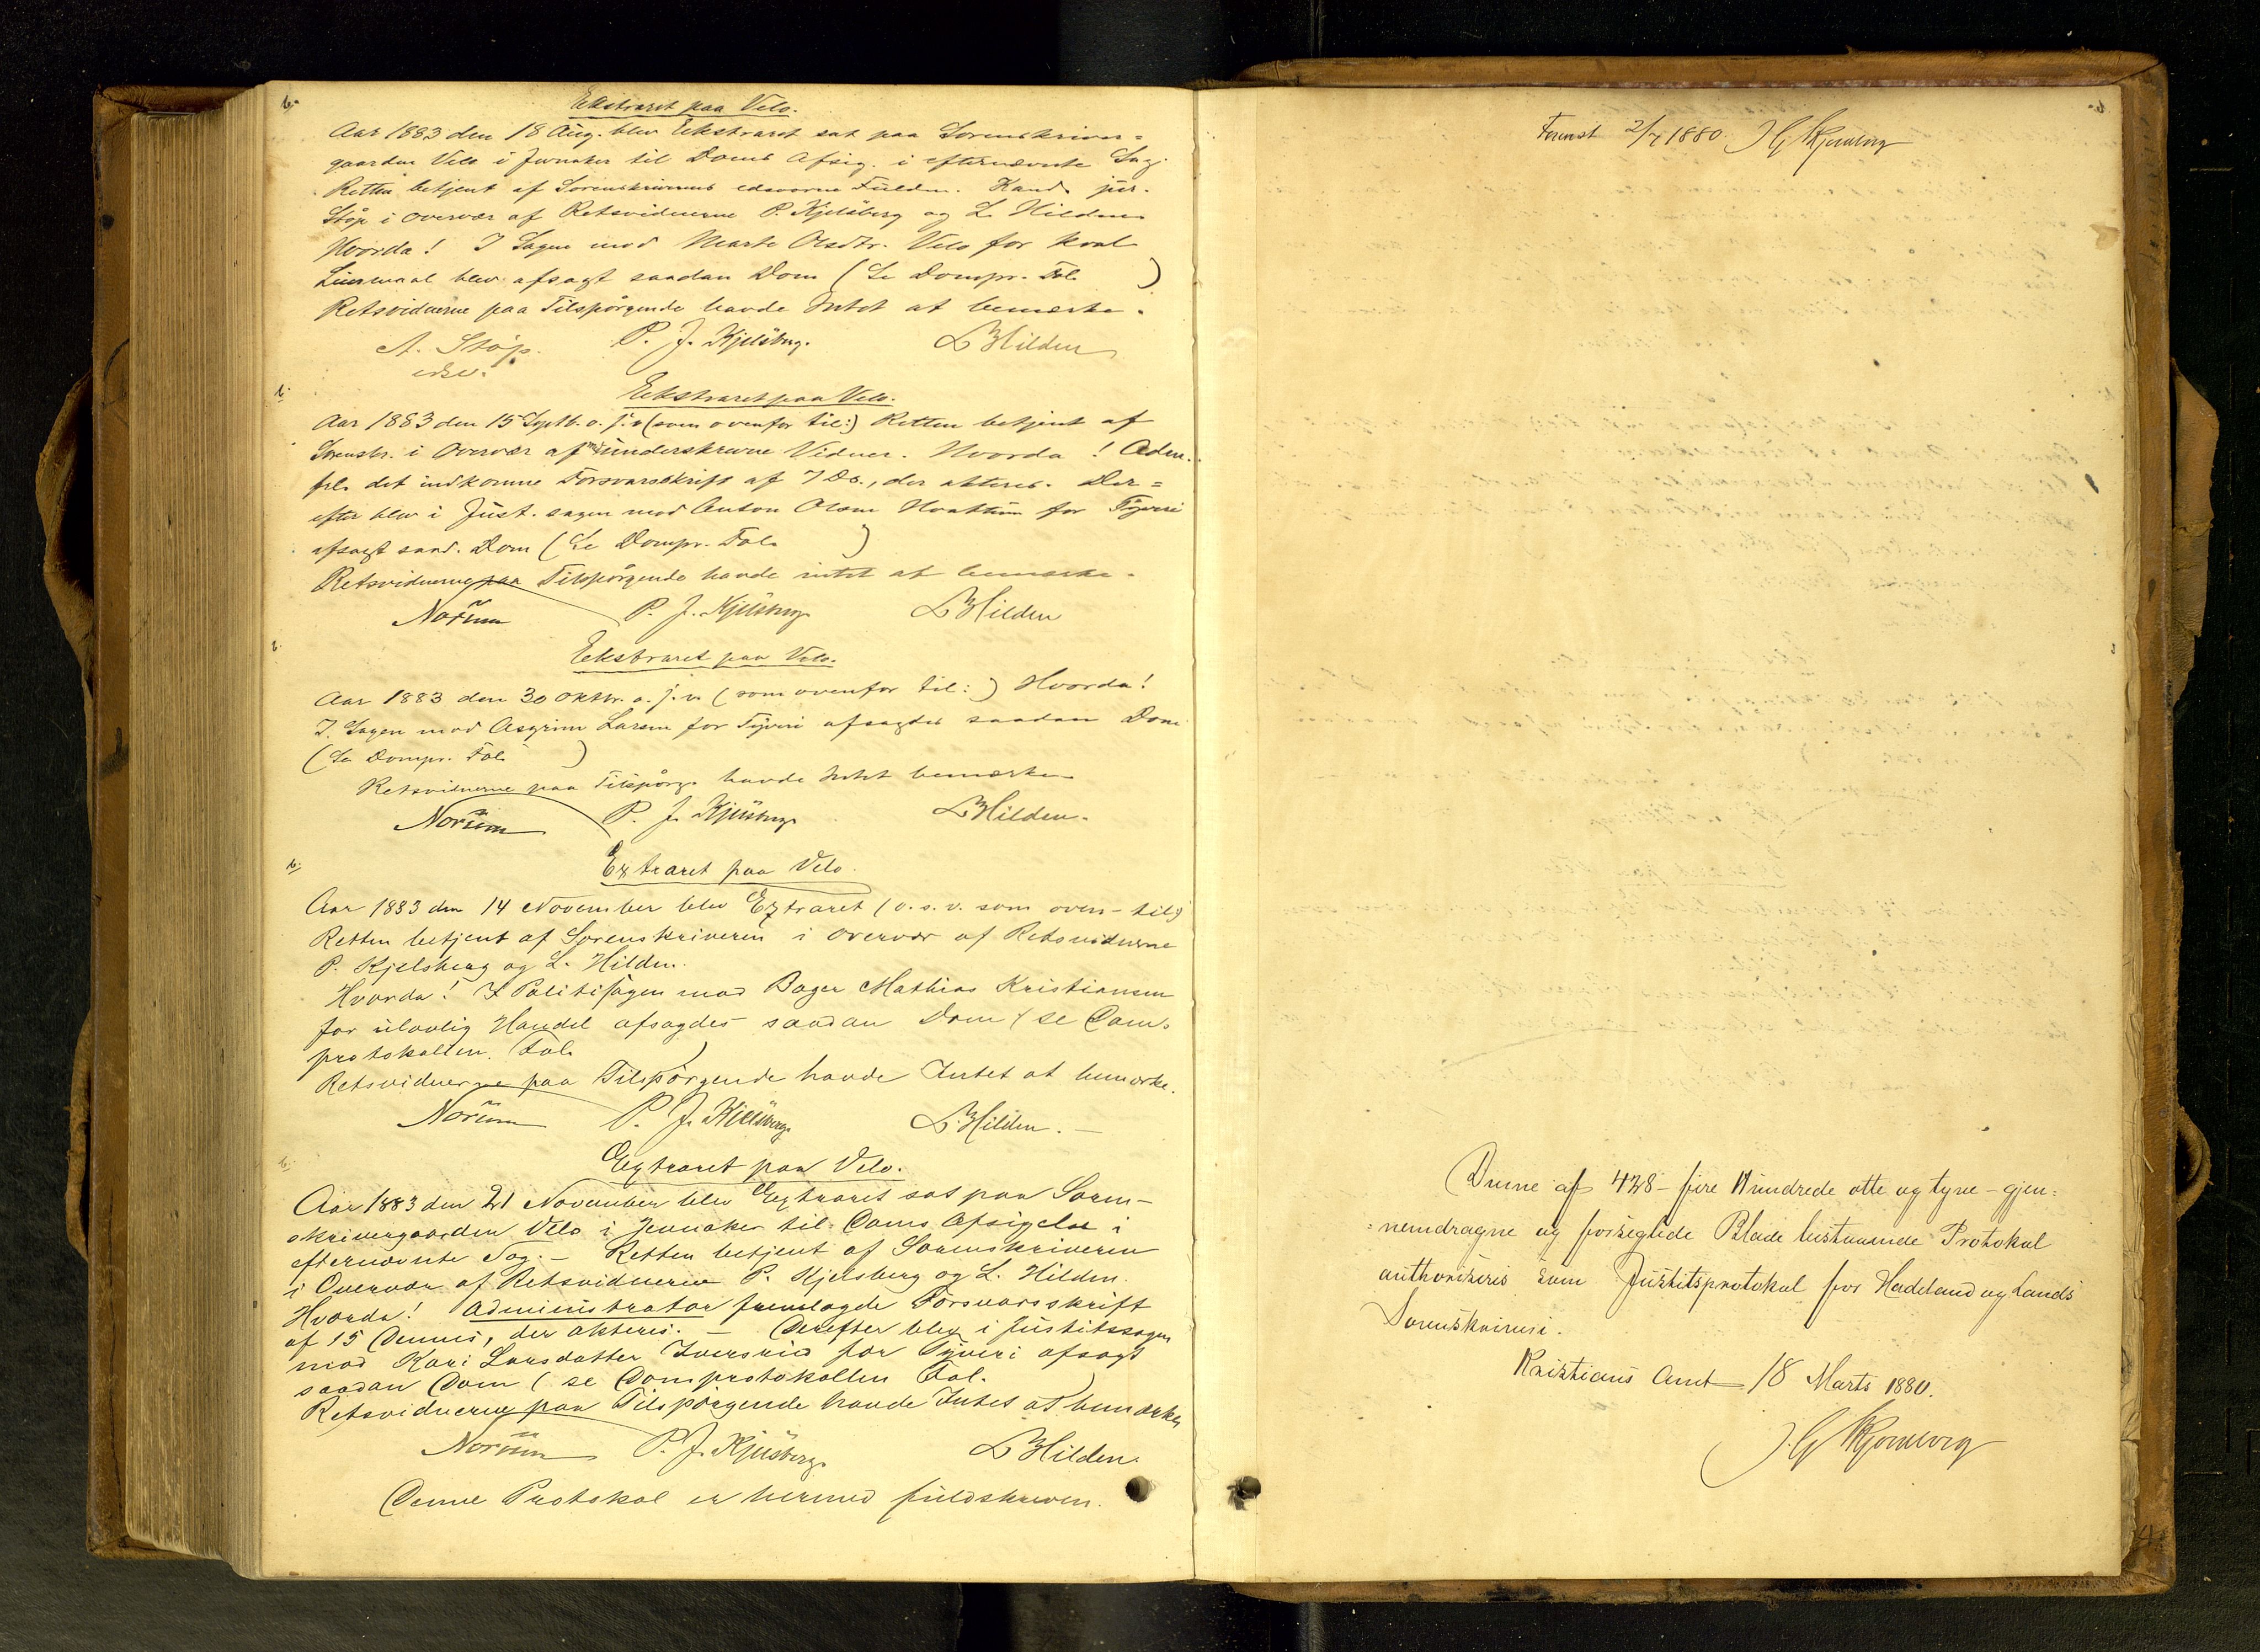 b.
Ekstraret paa Velo.
Aar 1883 den 18 Aug. blev Ekstraret sat paa Sorenskriver=
gaarden Velo i Jevnaker til Doms Afsig. i efternævnte Sag.
Retten betjent af Sorenskriverens edsvorne Fuldm. Kand. jur.
Støp i Overvær af Retsvidnerne P. Kjelsberg og L. Hilden
Hvorda! I Sagen mod Marte Olsdtr. Velo for kval.
Leiermaal blev afsagt saadan Dom (Se Dompr. Fol. )
Retsvidnerne paa Tilspørgende havde Intet at bemærke.
A. Støp. P. J. Kjelsberg. L Hilden
edsv.
b.
Ekstraret paa Velo.
Aar 1883 den 15 Septb. o. s. v (som ovenfor til:) Retten betjent af
Sorenskr. i Overvær af underskrevne Vidner. Hvorda! Adm.
frl. det indkomne Forsvarsskrift af 7 Ds., der akteres. Der=
efter blev i Just. sagen mod Anton Olsen Hvattum for Tyveri
afsagt saad. Dom (Se Dompr. Fol. )
Retsvidnerne paa Tilspørgende havde intet at bemærke.
Norum P. J. Kjelsberg L Hilden
b.
Eekstraret paa Velo.
Aar 1883 den 30 Oktbr. o. s. v. (som ovenfor til:) Hvorda!
I. Sagen mod Asgrim Larsen for Tyveri afsagdes saadan Dom
(Se Dompr. Fol. )
Retsvidnerne paa Tilspørg. havde Intet bemærke
Norum P. J. Kjelsberg L Hilden.
b.
Extraret paa Velo.
Aar 1883 den 14 November blev Extraret (o. s. v. som oven-til)
Retten betjent af Sorenskriveren i Overvær af Retsvidnerne
P. Kjelsberg og L. Hilden.
Hvorda! I Politisagen mod Bager Mathias Kristiansen
for ulovlig Handel afsagdes saadan Dom (se Dom-
protokollen. Fol. )
Retsvidnerne paa Tilspørgende havde Intet at bemærke.
Norum P. J. Kjelsberg L. Hilden. –
b.
Extraret paa Velo.
Aar 1883 den 21 November blev Extraret sat paa Soren-
skrivergaarden Velo i Jevnaker til Doms Afsigelse i
efternævnte Sag. – Retten betjent af Sorenskriveren
i Overvær af Retsvidnerne P. Kjelsberg og L. Hilden.
Hvorda! Administrator fremlagde Forsvarsskrift
af 15 Dennes, der akteres. – Derefter blev i Justitssagen
mod Kari Larsdatter Iversrud for Tyveri afsagt
saadan Dom (se Domprotokollen Fol. )
Retsvidnerne paa Tilspørgende havde Intet at bemærke
Norum P. J. Kjelsberg. L Hilden.
Denne Protokol er hermed fuldskreven.
2/7 1880.
Denne af 428 – fire Hundrede otte og tyve – gjen=
=nemdragne og forseglede Blade bestaaende Protokol
authoriseres som Justitsprotokol for Hadeland og Lands
Sorenskriveri.
Kristians Amt 18 Marts 1880.